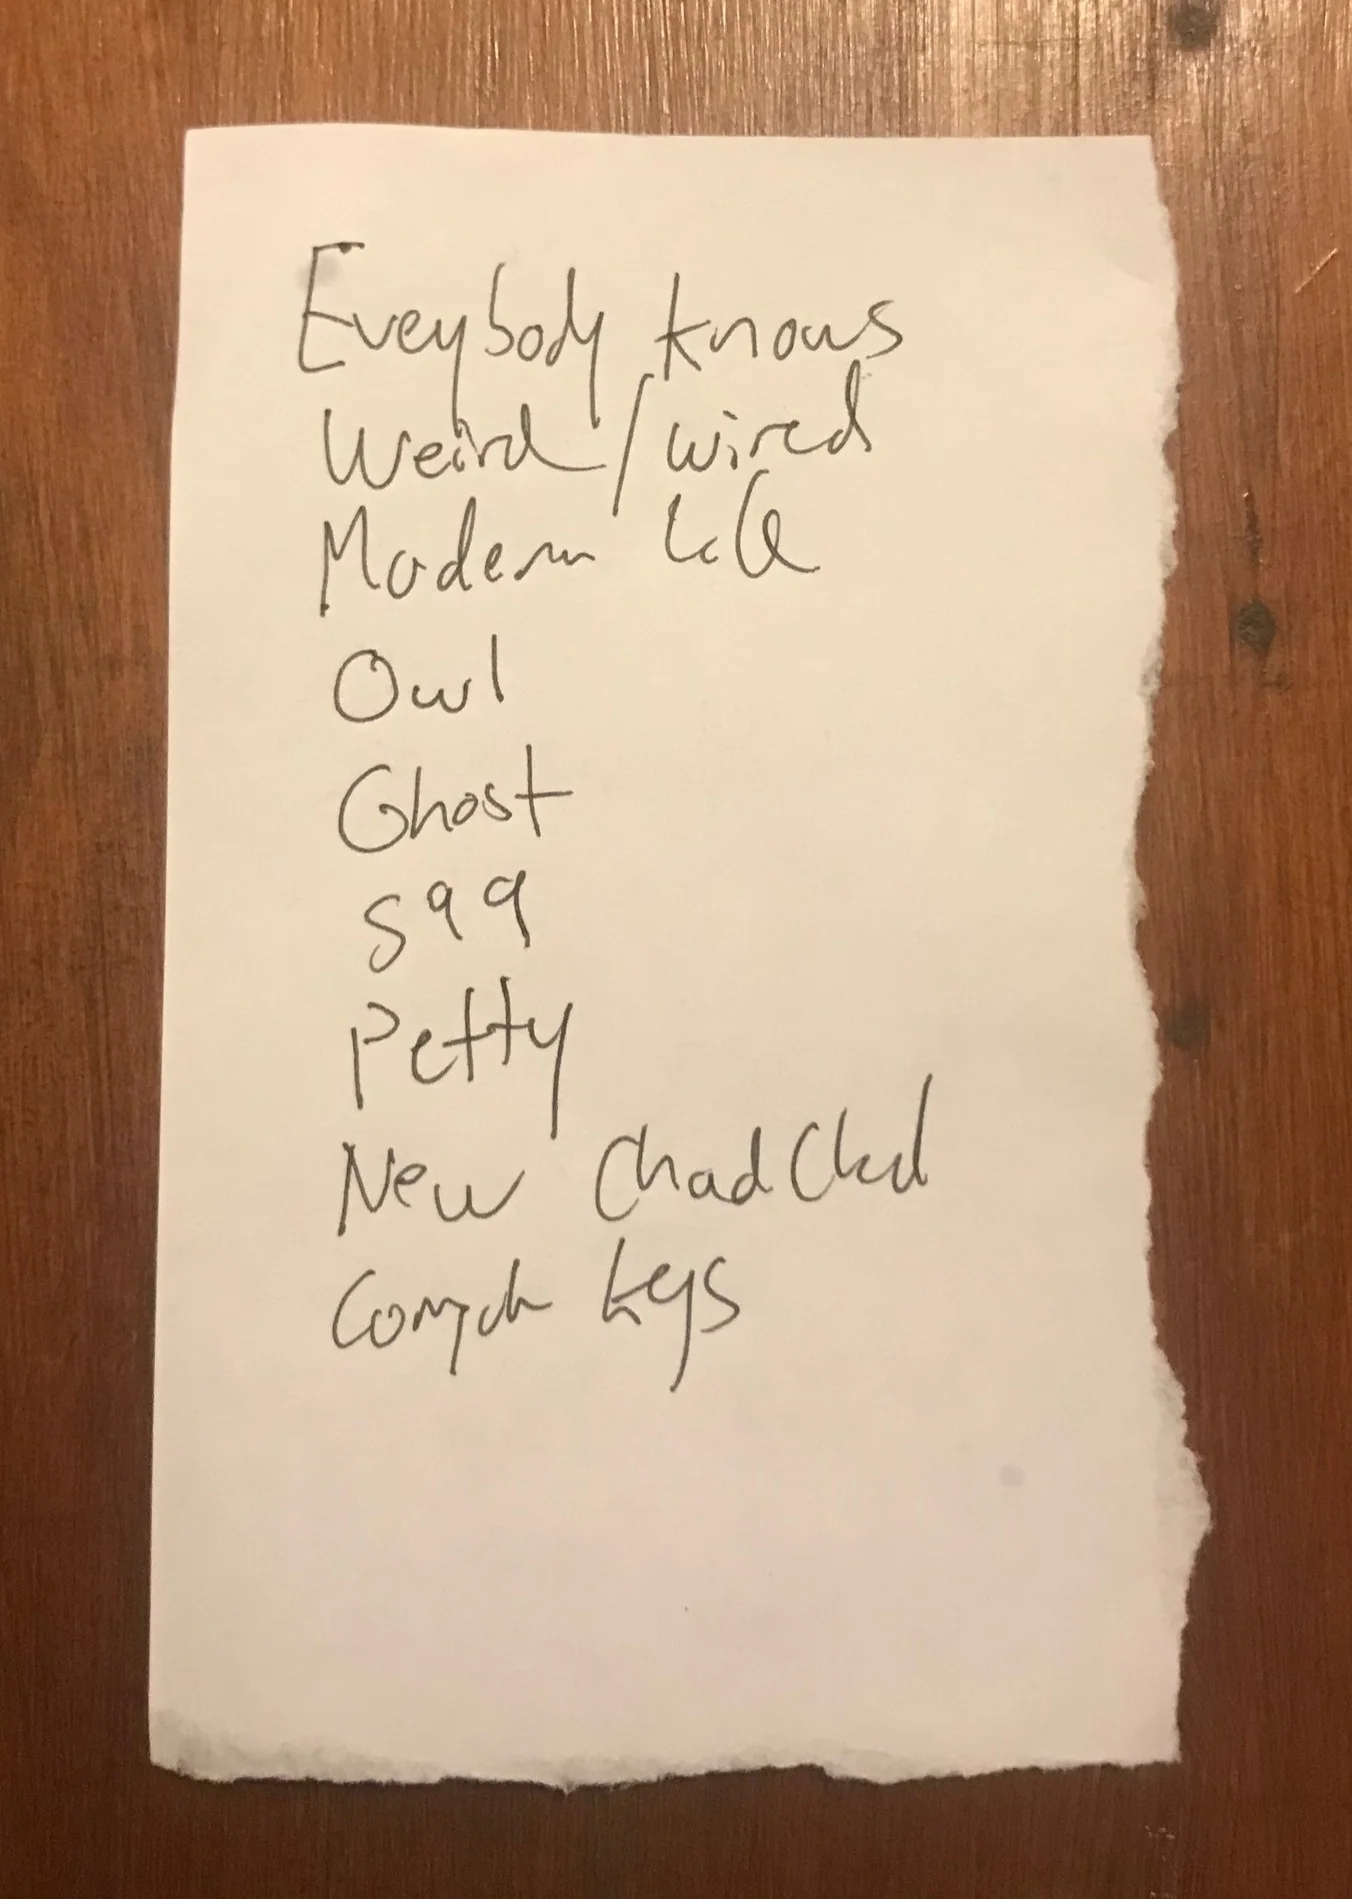 Eveybody knows
Weird / wired
Modern Life
Owl
Ghost
S99
Petty
New Chad Chad
keys